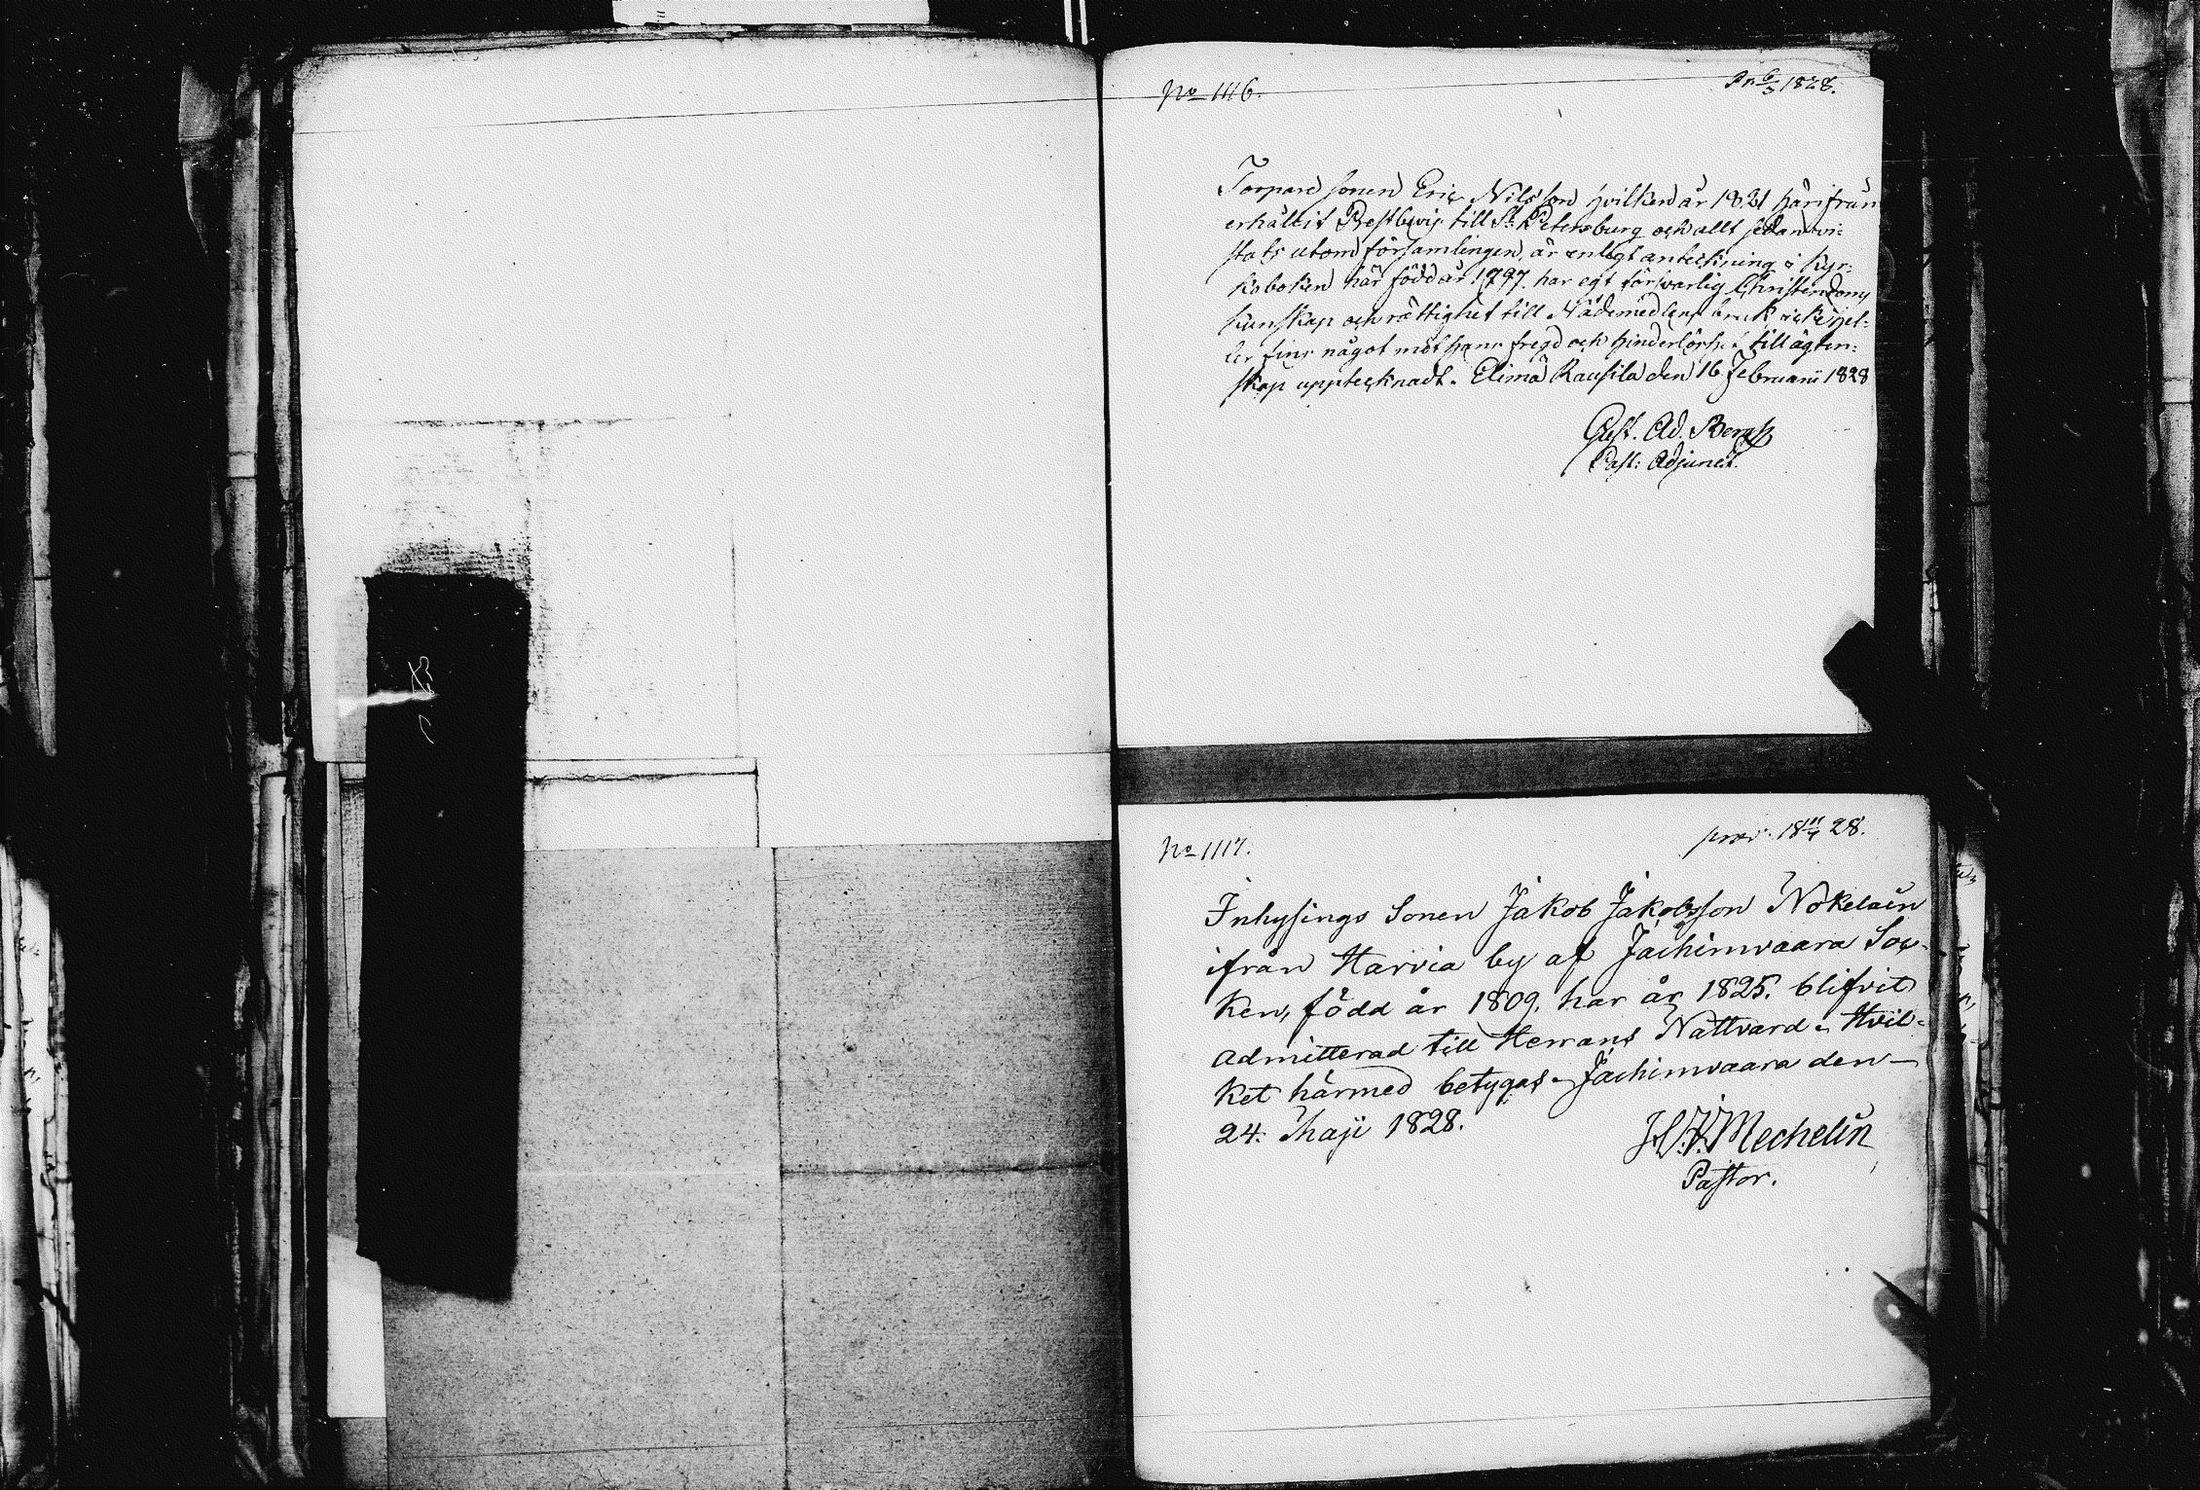 No 1116.
Pr 6/3 1828.
Torpare sonen Eric Nilsson hvilken år 1821 härifrån
erhållit Prestbevis till St Petersburg och allt sedan vi-
stats utom församlingen, är enligt anteckning i Kyr-
koboken här född år 1797. har egt försvarlig Christendoms
kunskap och rättighet till Nådemedlens bruk icke hel-
ler fins något mot hans fregd och hinderlöshet till ägten-
skap upptecknadt. Elimä Raussila den 16 Februarii 1828
Gust. Ad. Bergh
Past: Adjunct.
No 1117.
prod. 18 11/7 28.
Inhysings Sonen Jakob Jakobsson Nokelain
ifrån Harvia by af Jachimvaara Soc-
ken, född år 1809. har år 1825. blifvit
admitterad till Herrans Nattvard. Hvil-
ket härmed betygas. Jachimvaara den
24. Maji 1828.
Mechelin
Pastor.